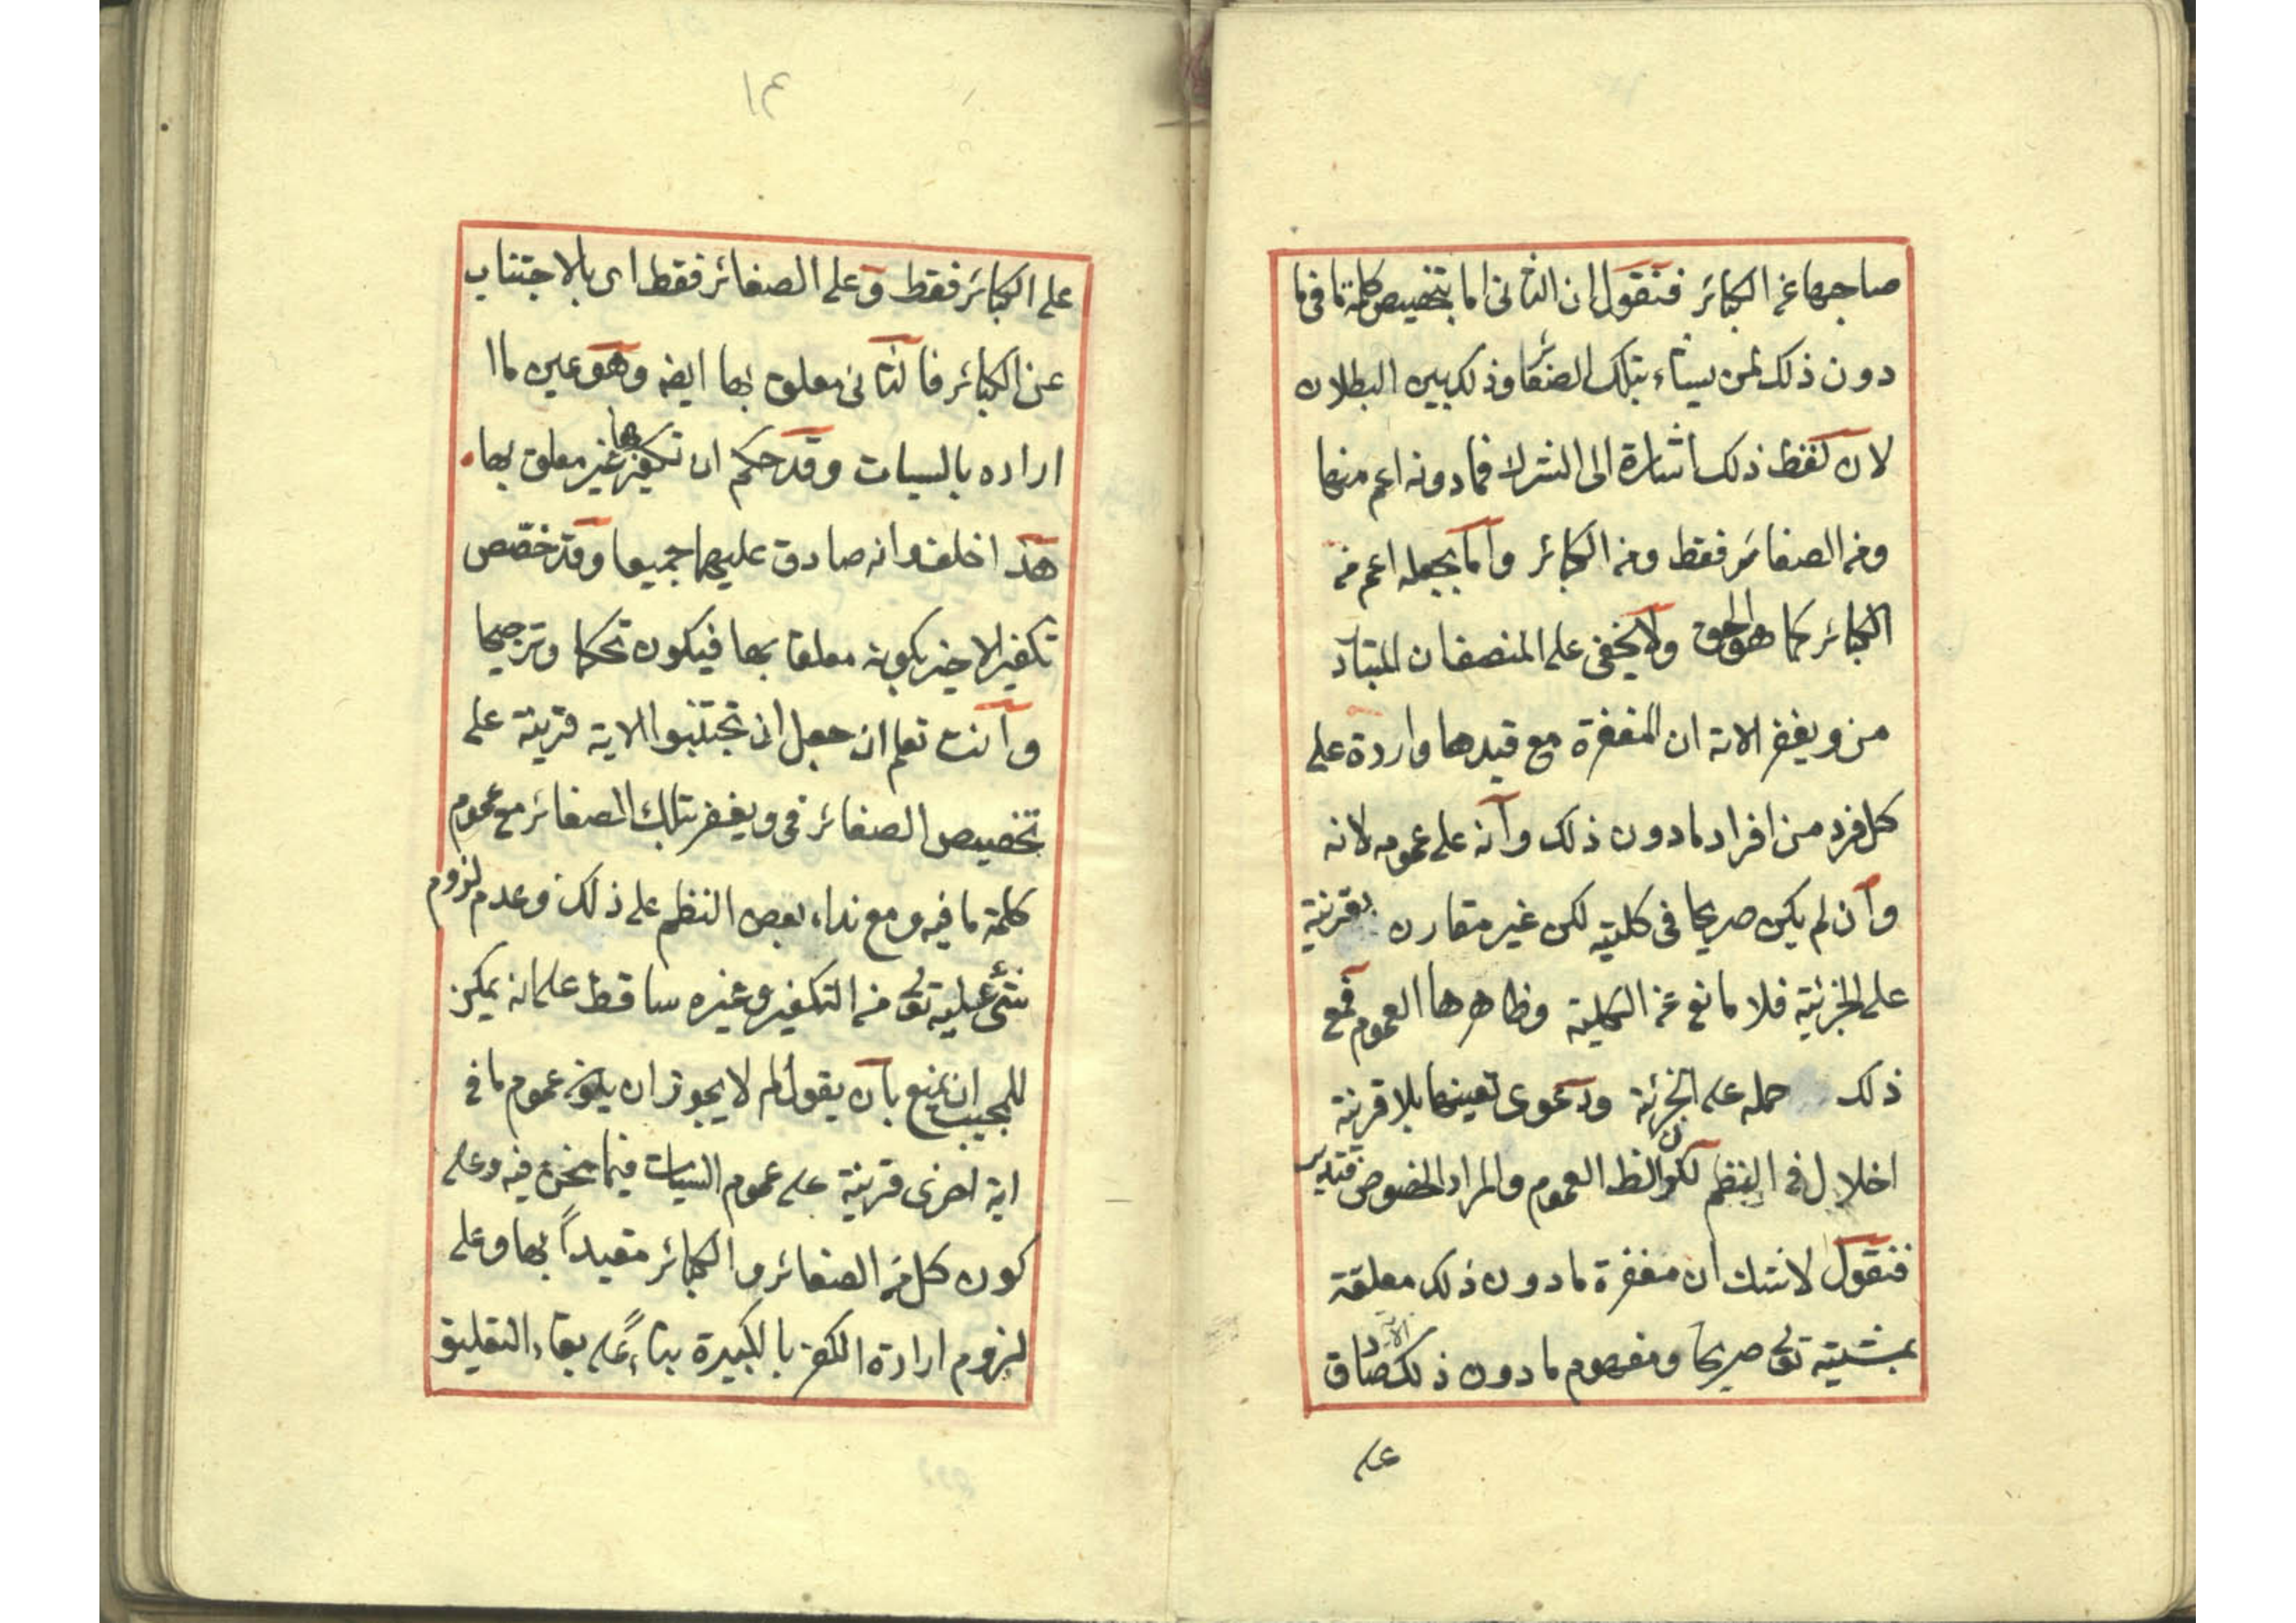 صاحبها عن الكبائر فنقول ان الثانى اما بتخصيص كلمة ما فى ما
دون ذلك لمن يشاء بتلك الصغائر وذلك بين البطلان
لان لفظ ذلك اشارة الى الشرك فما دونه اعم منها
ومن الصغائر فقط ومن الكبائر واما بجعله اعم من
الكبائر كما هو الحق ولا يخفى على المنصف ان المتبادر
من ويغفر الاية ان المغفرة مع قيدها واردة على
كل فرد من افراد ما دون ذلك وانه على عمومه لانه
وان لم يكن صريحا فى كليته لكن غير مقارن بقرينة
على الجزئية فلا مانع عن الكلية وظاهرها العموم فمع
ذلك حمله على الجزئية ودعوى تعينها بلا قرينة
اخلال فى النظم لكون اللفظ العموم والمراد الخصوص فتدبر
فنقول لا شك ان مغفرة ما دون ذلك معلقة
بمشيته تعالى صريحا ومفهوم ما دون ذلك الاية صادق
على
١٤
على الكبائر فقط وعلى الصغائر فقط اى بالاجتناب
عن الكبائر فالثانى معلق بها ايضا وهو عين ما ا
اراده بالسيات وقد حكم ان تكفيرها غير معلق بها
هذا خلف وانه صادق عليهما جميعا وقد خصص
تكفير الاخير بكونه معلقا بها فيكون تحكما وترجيحا
وانت تعلم ان جعل ان تجتنبوا الاية قرينة على
تخصيص الصغائر فى ويغفر بتلك الصغائر مع عموم
كلمة ما فيه ومع نداء بعض النظم على ذلك وعدم لزوم
شئ عليه تعالى من التكفير وغيره ساقط على انه يمكن
للمجيب ان يمنع بان يقول لم لا يجوز ان يكون عموم ما فى
اية اخرى قرينة على عموم السيات فيما نحن فيه وعلى
كون كل من الصغائر والكبائر مقيداً بها وعلى
لزوم ارادة الكفر بالكبيرة بناءً على بقاء التعليق